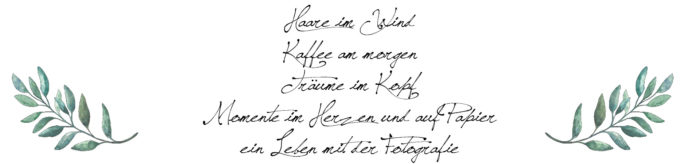 Haare im Wind
Kaffee am morgen
Träume im Kopf
Momente im Herzen und auf Papier
ein Leben mit der Fotografie